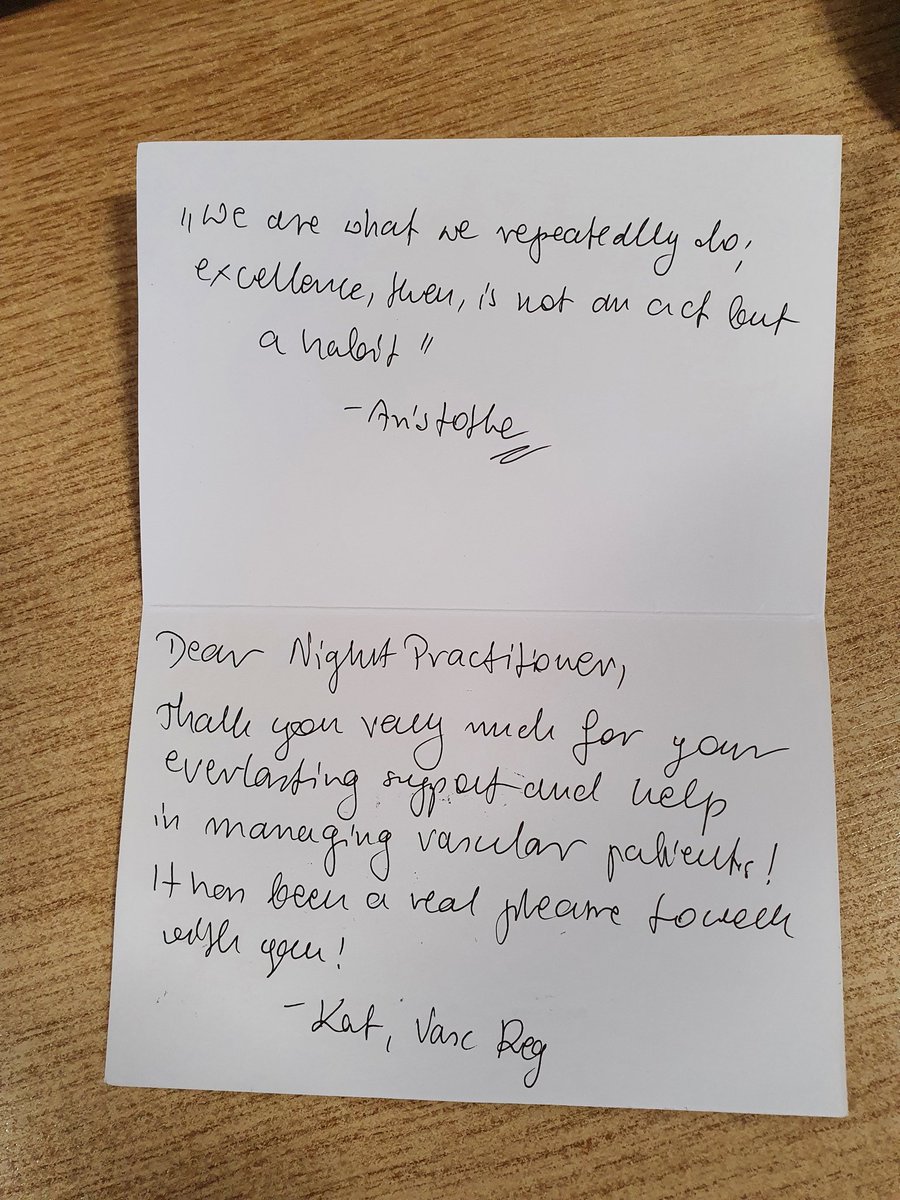 "We are what we repeatedly do;
excellence, then, is not an act but
a habit"
- Aristotle
Dear Night Practitioner,
Thank you very much for your
everlasting support and help
in managing vascular patients!
It has been a real pleasure to work
with you!
- Kat, Vasc Reg